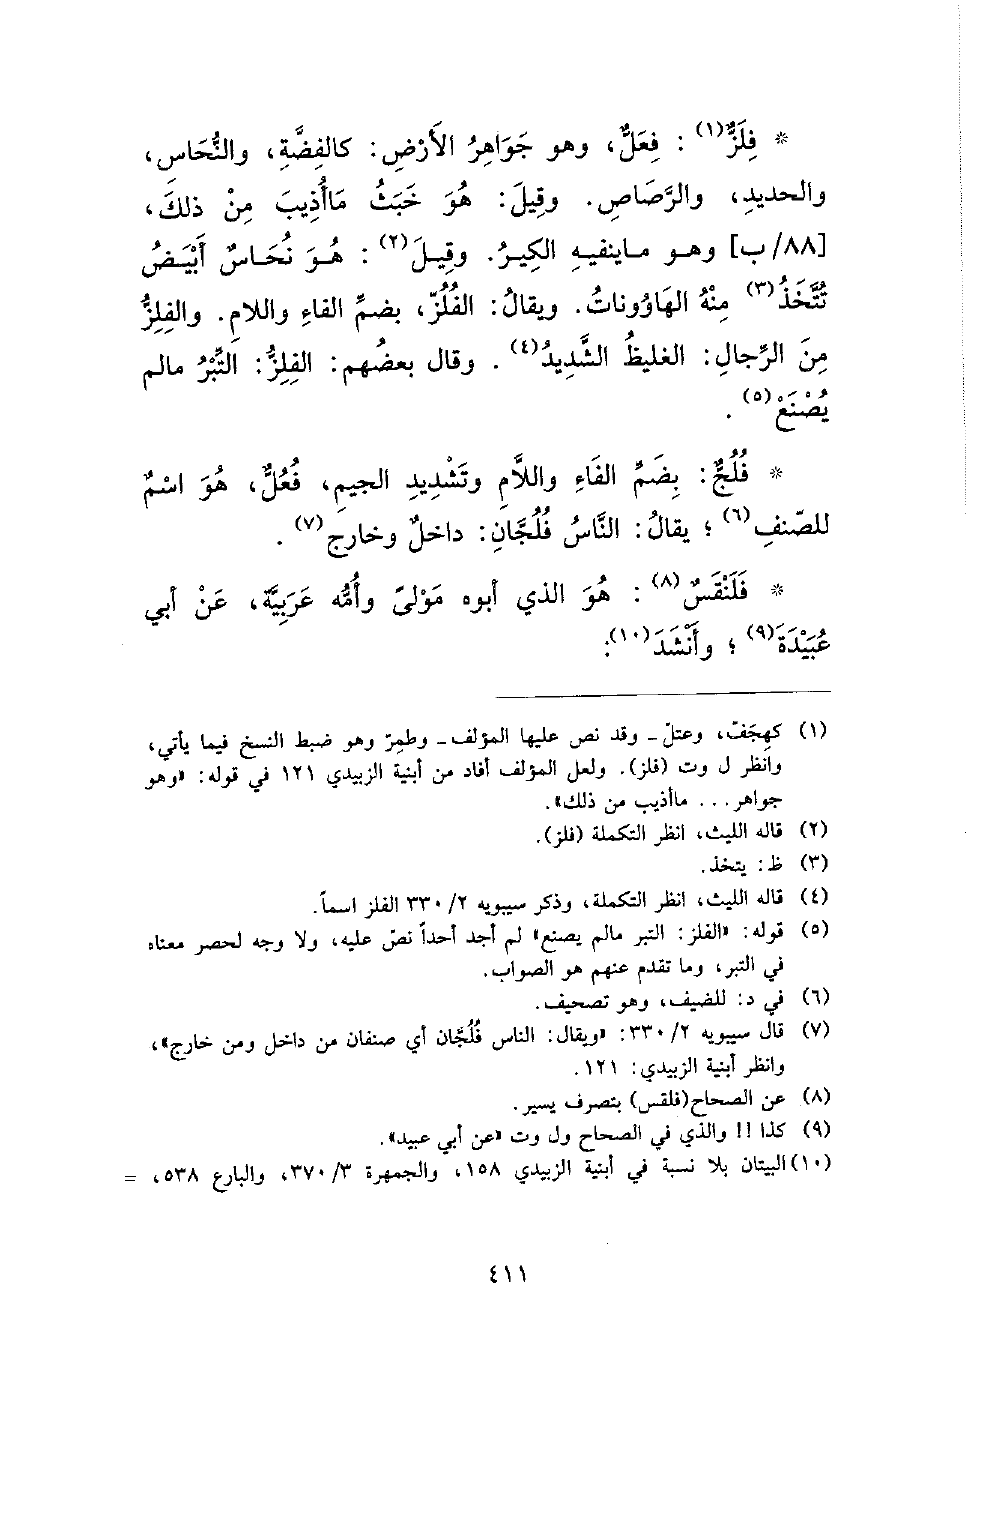 * فِلَزٌّ(١) : فِعَلٌّ، وهو جَوَاهِرُ الأَرْضِ: كالفِضَّةِ، والنُّحَاسِ،
والحديدِ، والرَّصَاصِ. وقِيلَ: هُوَ خَبَثُ مَاأُذِيبَ مِنْ ذلكَ،
[٨٨/ ب] وهـو مـاينفيـهِ الكِيـرُ. وقِيـلَ(٢) : هُـوَ نُحَـاسٌ أَبْيَـضُ
تُتَّخَذُ(٣) مِنْهُ الهَاوُوناتُ. ويقالُ: الفُلُزّ، بضمِّ الفاءِ واللامِ. والفِلِزُّ
مِنَ الرِّجالِ: الغليظُ الشَّدِيدُ(٤) . وقال بعضُهم: الفِلِزُّ: التِّبْرُ مالم
يُصْنَعْ(٥) .
* فُلُجٌّ: بِضَمِّ الفَاءِ واللَّامِ وتَشْدِيدِ الجيمِ، فُعُلٌّ، هُوَ اسْمٌ
للصّنفِ(٦) ؛ يقالُ: النَّاسُ فُلُجَّانِ: داخلٌ وخارج(٧) .
* فَلَنْقَسٌ(٨) : هُوَ الذي أبوه مَوْلىً وأُمُّه عَرَبِيَّة، عَنْ أبي
عُبَيْدَةَ(٩) ؛ وأَنْشَدَ(١٠):
(١) كهِجَفّ، وعتلّ ـ وقد نص عليها المؤلف ـ وطمِرّ وهو ضبط النسخ فيما يأتي،
وانظر ل وت (فلز). ولعل المؤلف أفاد من أبنية الزبيدي ١٢١ في قوله: «وهو
جواهر . . . ماأذيب من ذلك».
(٢) قاله الليث، انظر التكملة (فلز).
(٣) ظ: يتخذ.
(٤) قاله الليث، انظر التكملة، وذكر سيبويه ٢/ ٣٣٠ الفلز اسماً.
(٥) قوله: «الفلز: التبر مالم يصنع» لم أجد أحداً نصّ عليه، ولا وجه لحصر معناه
في التبر، وما تقدم عنهم هو الصواب.
(٦) في د: للضيف، وهو تصحيف.
(٧) قال سيبويه ٢/ ٣٣٠: «ويقال: الناس فُلُجَّان أي صنفان من داخل ومن خارج»،
وانظر أبنية الزبيدي: ١٢١.
(٨) عن الصحاح(فلقس) بتصرف يسير.
(٩) كذا !! والذي في الصحاح ول وت «عن أبي عبيد».
(١٠) البيتان بلا نسبة في أبنية الزبيدي ١٥٨، والجمهرة ٣/ ٣٧٠، والبارع ٥٣٨، =
٤١١